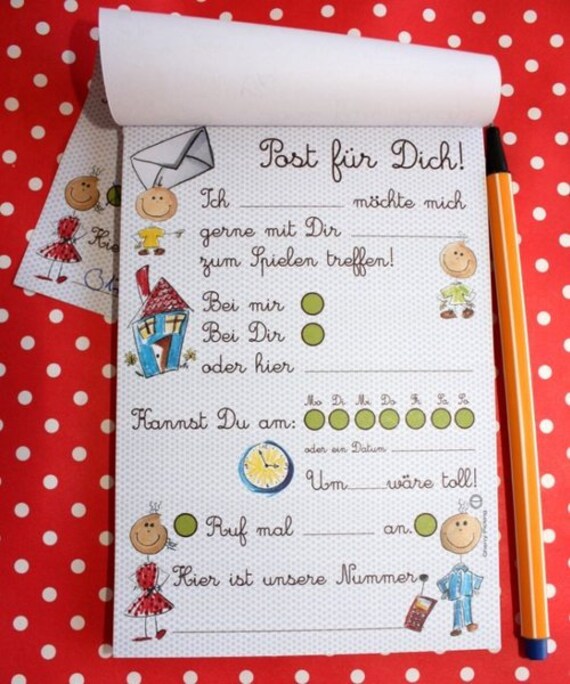 Post für Dich!
Ich __________ möchte mich
gerne mit Dir __________
zum Spielen treffen!
Bei mir
Bei Dir
oder hier __________
Mo Di Mi Do Fr Sa So
Kannst Du am:
oder ein Datum __________
Um____wäre toll!
Ruf mal ________ an.
Hier ist unsere Nummer